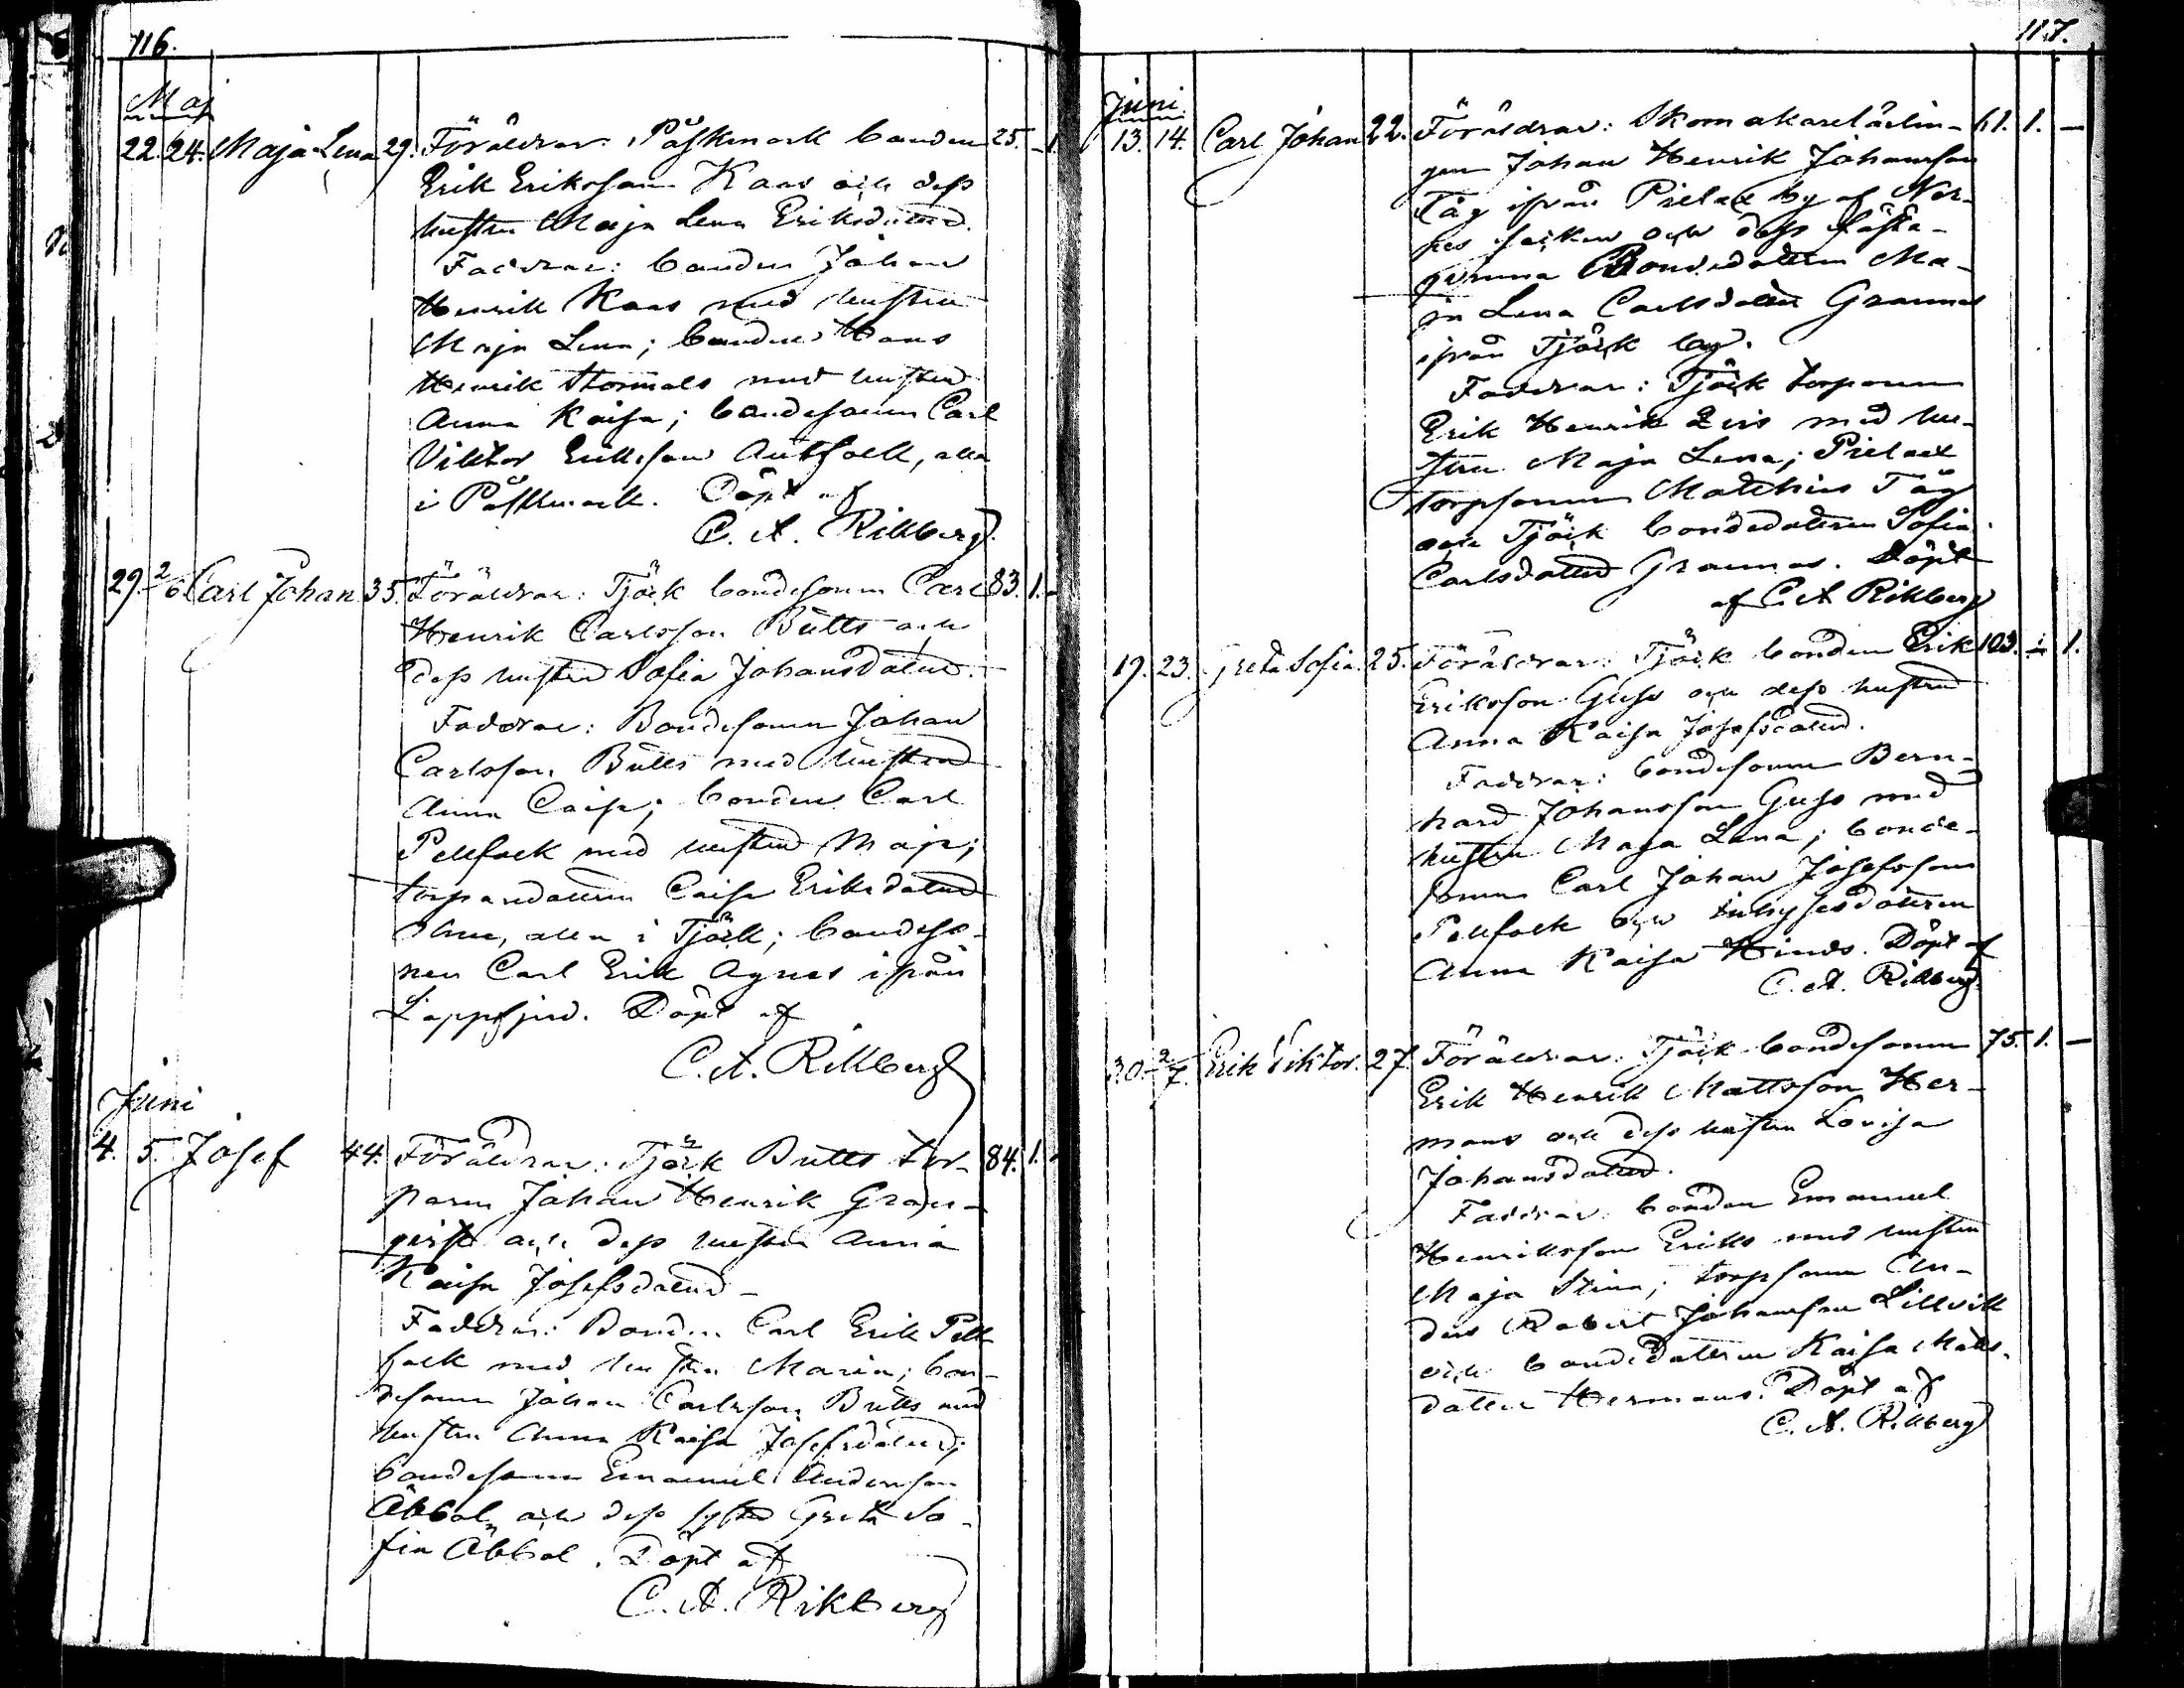 116.
Maj
22. 24. Maja Lena 29. Föräldrar: Påskmark bonden 25. - 1.
Erik Eriksson Kaas och dess
hustru Maja Lena Eriksdotter.
Faddrar: bonden Johan
Henrik Kaas med hustru
Maja Lena; bonden Hans
Henrik Stormåls med hustru
Anna Kaisa; bondesonen Carl
Viktor Eriksson Antfolk, alla
i Påskmark. Döpt af
C. A. Rikberg.
29. 2/6 Carl Johan 35. Föräldrar: Tjöck bondesonen Carl 83. 1. -
Henrik Carlsson Bútts och
dess hustru Sofia Johansdotter.
Faddrar: Bondesonen Johan
Carlsson Bútts med hustru
Anna Caisa; bonden Carl
Pellfolk med hustru Maja;
torparedottren Caisa Eriksdotter
alla i Tjöck; bondeso-
nen Carl Erik Agnes ifrån
Lappfjerd. Döpt af
C. A. Rikberg
Juni
4. 5. Josef 44. Föräldrar: Tjöck Bútts tor- 84. 1. -
paren Johan Henrik Gran-
qvist och dess hustru Anna
Kaisa Josefsdotter
Faddrar: Bonden Carl Erik Pell
folk med hustru Maria; bon-
desonen Johan Carlsson Bútts med
hustru Anna Kaisa Josefsdotter;
bondesonen Emanuel Andersson
Åbbol, och dess syster Greta So-
fia Åbbol. Döpt af
C. A. Rikberg
117.
Juni
13. 14. Carl Johan 22. Föräldrar: Skomakarelärlin- 61. 1. -
gen Johan Henrik Johansson
Tåg ifrån Pielax by af När-
pes socken och dess fäste-
qvinna Bondedottren Ma-
ja Lena Carlsdotter Grannas
ifrån Tjöck by.
Faddrar: Tjöck torparen
Erik Henrik med hu-
stru Maja Lena; Pielax
torpsonen Matthias Tåg
och Tjöck bondedottren Sofia
Carlsdotter Grannas. Döpt
af C. A. Rikberg
19. 23. Greta Sofia. 25. Föräldrar: Tjöck bonden Erik 103. - 1.
Eriksson Guss och dess hustru
Anna Kaisa Josefsdotter.
Faddrar: bondesonen Bern-
hard Johansson Guss med
hustru Maja Lena; bonde-
sonen Carl Johan Josefsson
Pellfolk och inhysesdottren
Anna Kaisa Hinds. Döpt af
C. A. Rikberg.
30. 2/7. Erik Viktor. 27. Föräldrar: Tjöck bondesonen 75. 1. -
Erik Henrik Mattsson Her-
mans och dess hustru Lovisa
Johansdotter.
Faddrar: bonden Emanuel
Henriksson Eriks med hustru
Maja Stina; torpsonen An-
ders Robert Johansson Lillvik
och bondedottren Kaisa Matts-
dotter Hermans. Döpt af
C. A. Rikberg